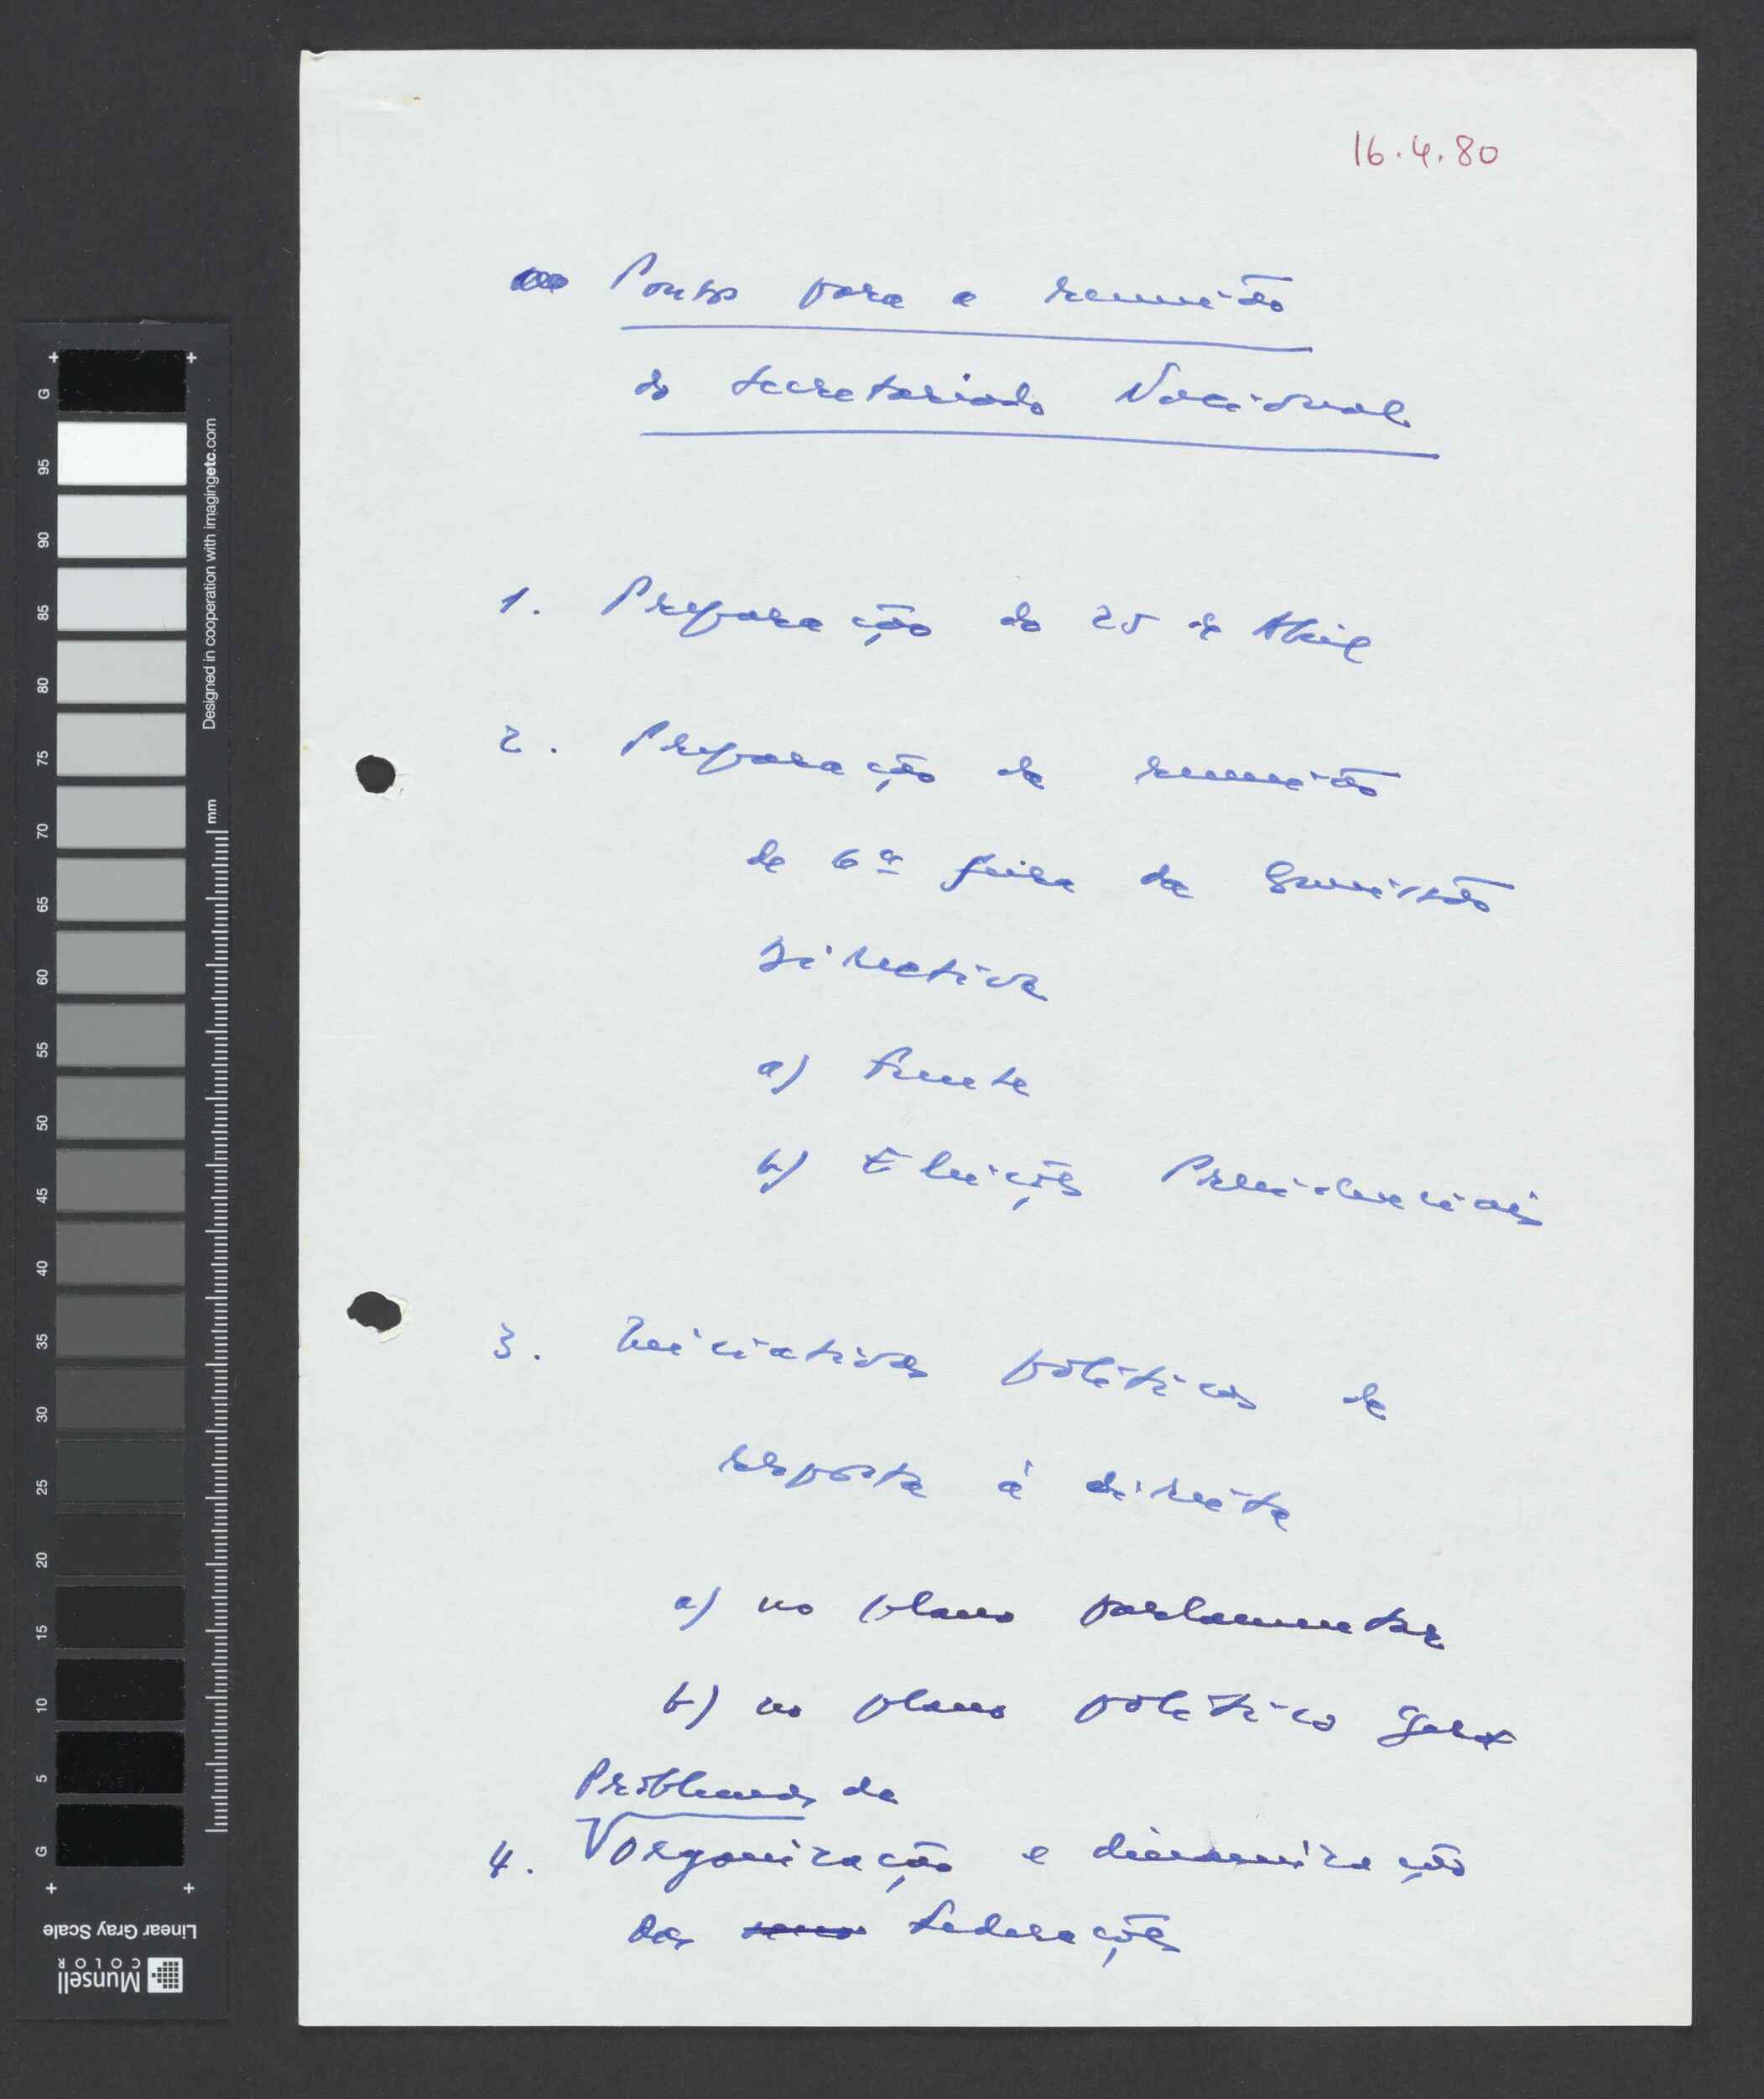 16.4.80
Pontos para a reunião
do Secretariado Nacional
1. Preparação do 25 de Abril
2. Preparação da reunião
de 6ª feira da Comissão
Directiva
a) Frente
b) Eleições Presidenciais
3. Iniciativas políticas de
resposta à direita
a) no plano parlamentar
b) no plano político geral
Problemas de
4. organização e dinamização
das Federações
G
95
90
85
80
75
70
65
60
55
50
45
40
35
30
25
20
15
10
5
G
Designed in cooperation with imagingetc.com
mm
Linear Gray Scale
Munsell
COLOR